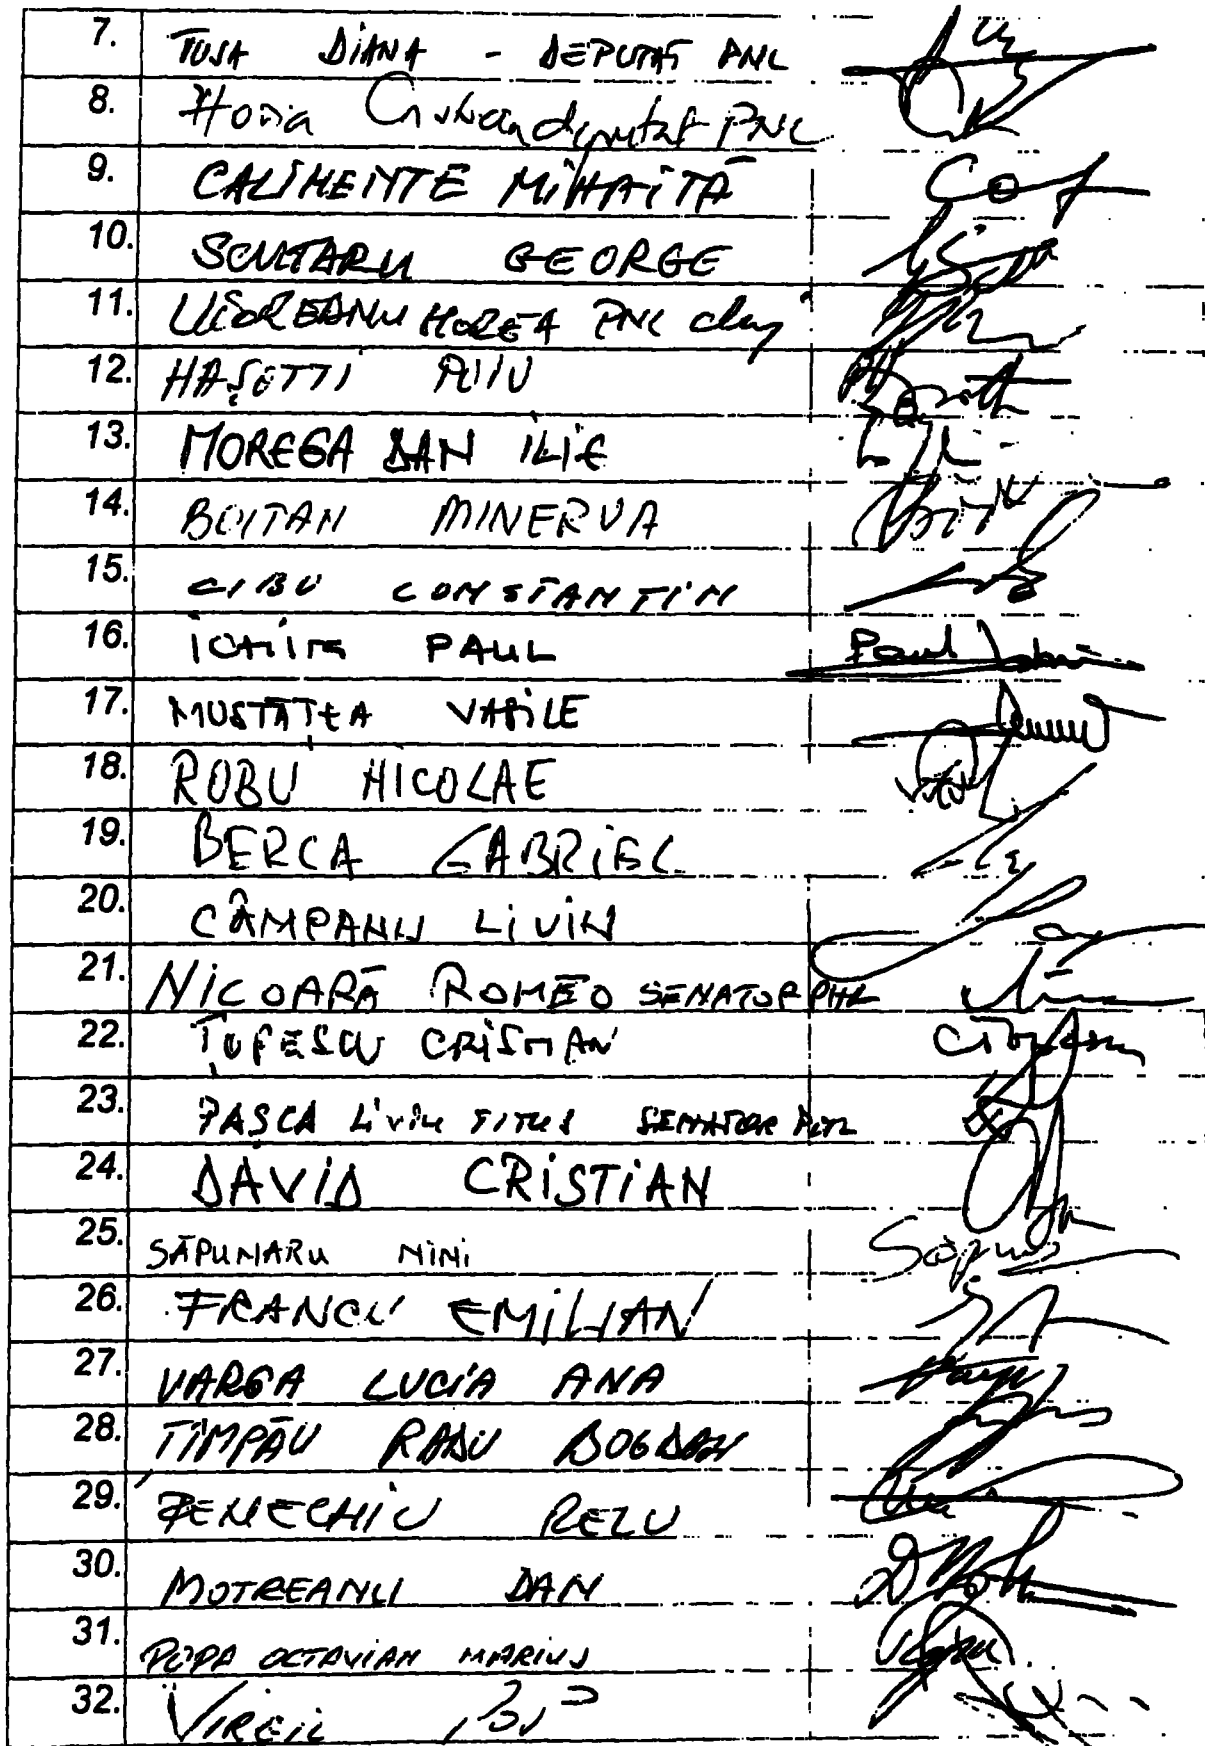 7. TUSA DIANA - DEPUTAT PNL
8. Horia Cristian deputat PNL
9. CALIMENTE MIHĂIȚĂ
10. SCUTARU GEORGE
11. UIOREANU HOREA PNL Cluj
12. HAȘOTTI PUIU
13. MOREGA DAN ILIE
14. BOITAN MINERVA
15. CIBU CONSTANTIN
16. ICHIM PAUL Paul Ichim
17. MUSTĂȚEA VASILE
18. ROBU NICOLAE
19. BERCA GABRIEL
20. CÂMPANU LIVIU
21. NICOARĂ ROMEO SENATOR PNL
22. ȚOPESCU CRISTIAN
23. PAȘCA Liviu TITUS SENATOR PNL
24. DAVID CRISTIAN
25. SĂPUNARU NINI
26. FRANCU EMILIAN
27. VARGA LUCIA ANA
28. TÎMPĂU RADU BOGDAN
29. FENECHIU RELU
30. MOTREANU DAN
31. POPA OCTAVIAN MARIUS
32. VIRGIL POP